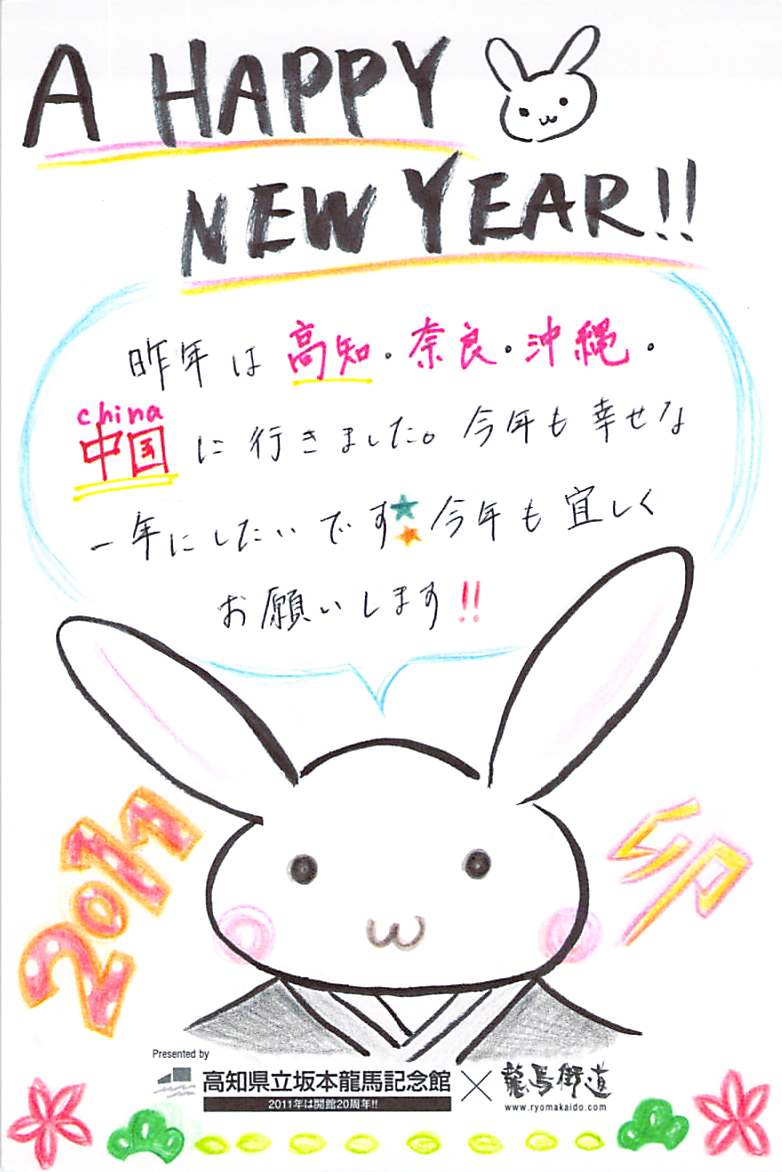 A HAPPY
NEW YEAR!!
昨年は高知・奈良・沖縄・
china
中国に行きました。今年も幸せな
一年にしたいです 今年も宜しく
お願いします!!
2011
卯
Presented by
高知県立坂本龍馬記念館 × 龍馬街道
2011年は開館20周年!!
www.ryomakaido.com